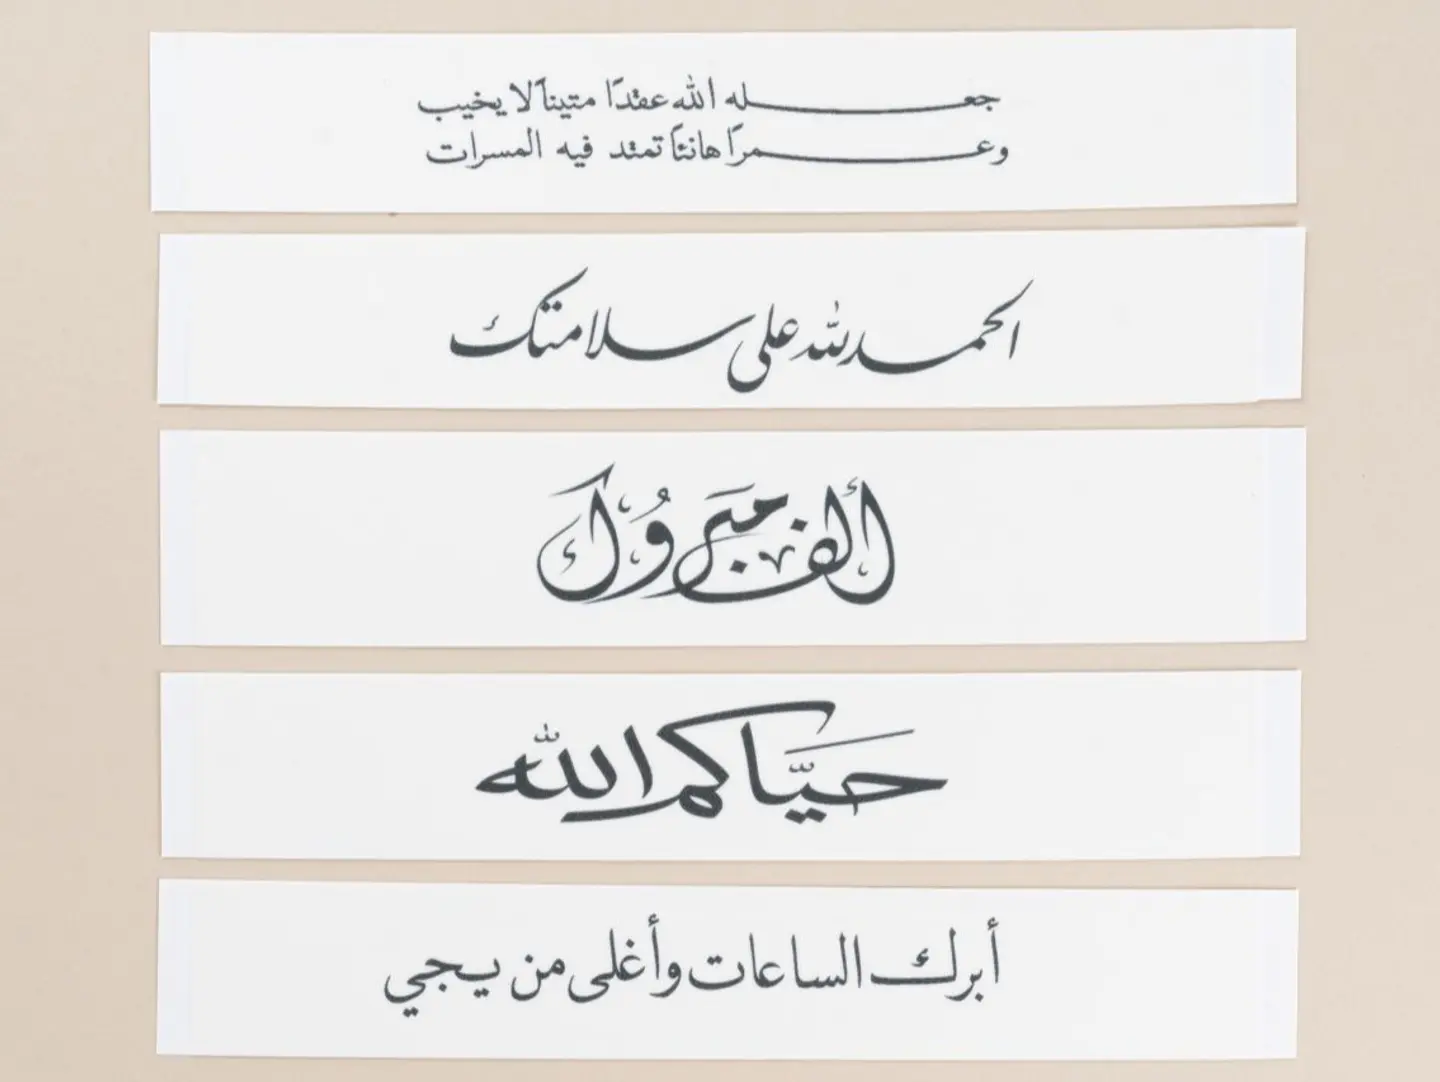 جعله الله عقدًا متينًا لا يخيب
وعمرًا هانئًا تمتد فيه المسرات
الحمدلله على سلامتك
ألف مبروك
حياكم الله
أبرك الساعات وأغلى من يجي